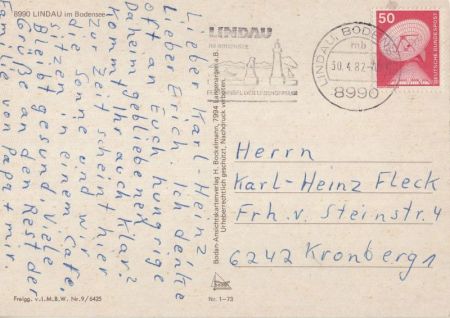 8990 LINDAU im Bodensee
Lieber Karl-Heinz
Lieber Erich. ich denke
oft an Euch hungrige
Daheimgebliebenen
kommt Ihr auch klar?
Zur Zeit scheint hier
die Sonne und wir
sitzen in einem Cafe
Bleibt gesund Viele
Grüße an den Rest der
Familie von Papa + mir.
Freigg. v. I.M.B.W. Nr. 9/6425
Boden-Ansichtskartenverlag H. Bockelmann, 7994 Langenargen a.B.
Urheberrechtlich geschützt, Nachdruck verboten.
Nr. 1-73
LINDAU
IM BODENSEE
LINDAU, BODENSEE
mb
30.4.82
8990
50
DEUTSCHE BUNDESPOST
Herrn
Karl-Heinz Fleck
Frh. v. Steinstr. 4
6242 Kronberg 1